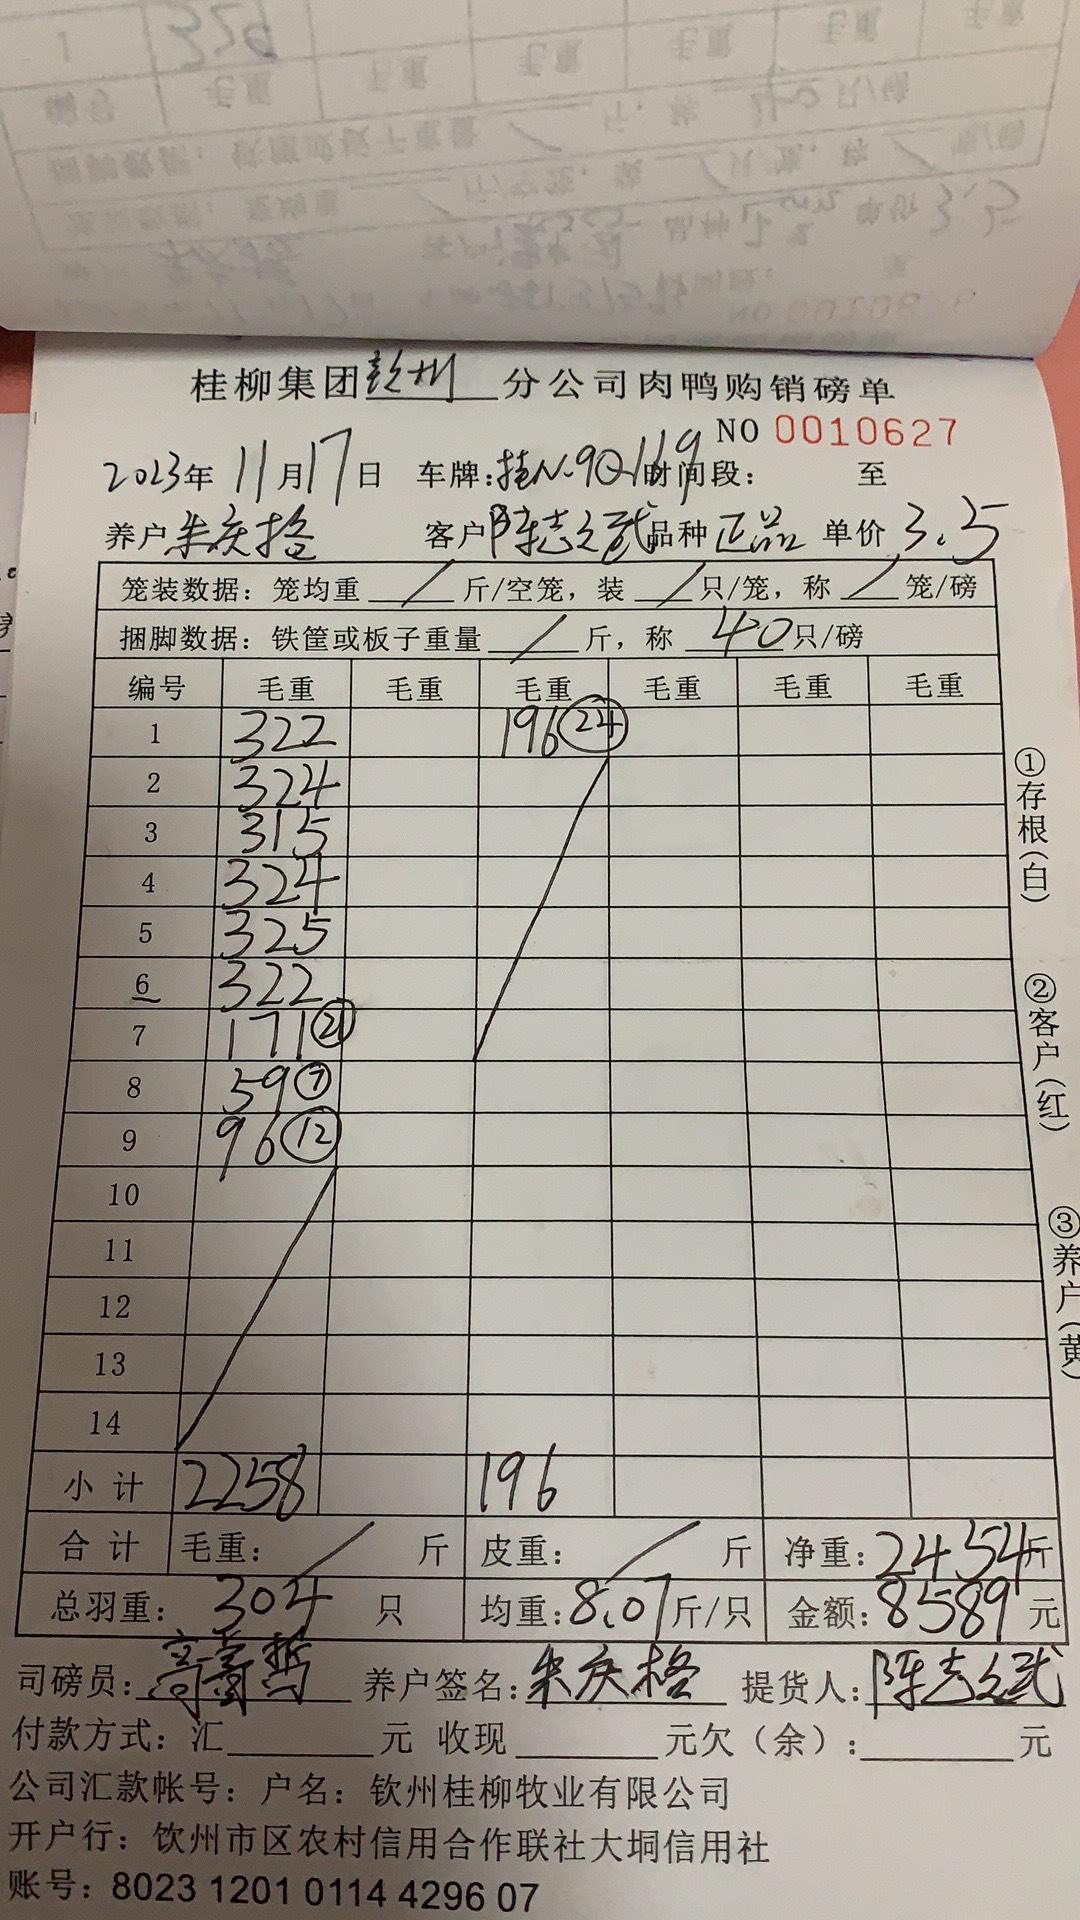 桂柳集团彭州分公司肉鸭购销磅单
NO 0010627
2023年 11月17日 车牌:桂N·9Q119 时间段: 至
养户 朱庆格 客户 陈志武 品种 正品 单价 3.5
笼装数据: 笼均重 / 斤/空笼, 装 / 只/笼, 称 / 笼/磅
捆脚数据: 铁筐或板子重量 / 斤, 称 40 只/磅
编号 毛重 毛重 毛重 毛重 毛重 毛重
1 322 196 (24)
2 324
3 315
4 324
5 325
6 322
7 171 (21)
8 59 (7)
9 96 (12)
10
11
12
13
14
小计 2258 196
合计 毛重: / 斤 皮重: / 斤 净重: 2454 斤
总羽重: 304 只 均重: 8.07 斤/只 金额: 8589 元
司磅员: 养户签名: 朱庆格 提货人: 陈志武
付款方式: 汇 元 收现 元欠(余): 元
公司汇款帐号: 户名: 钦州桂柳牧业有限公司
开户行: 饮州市区农村信用合作联社大垌信用社
账号: 8023 1201 0114 4296 07
①存根(白)
②客户(红)
③养户(黄)